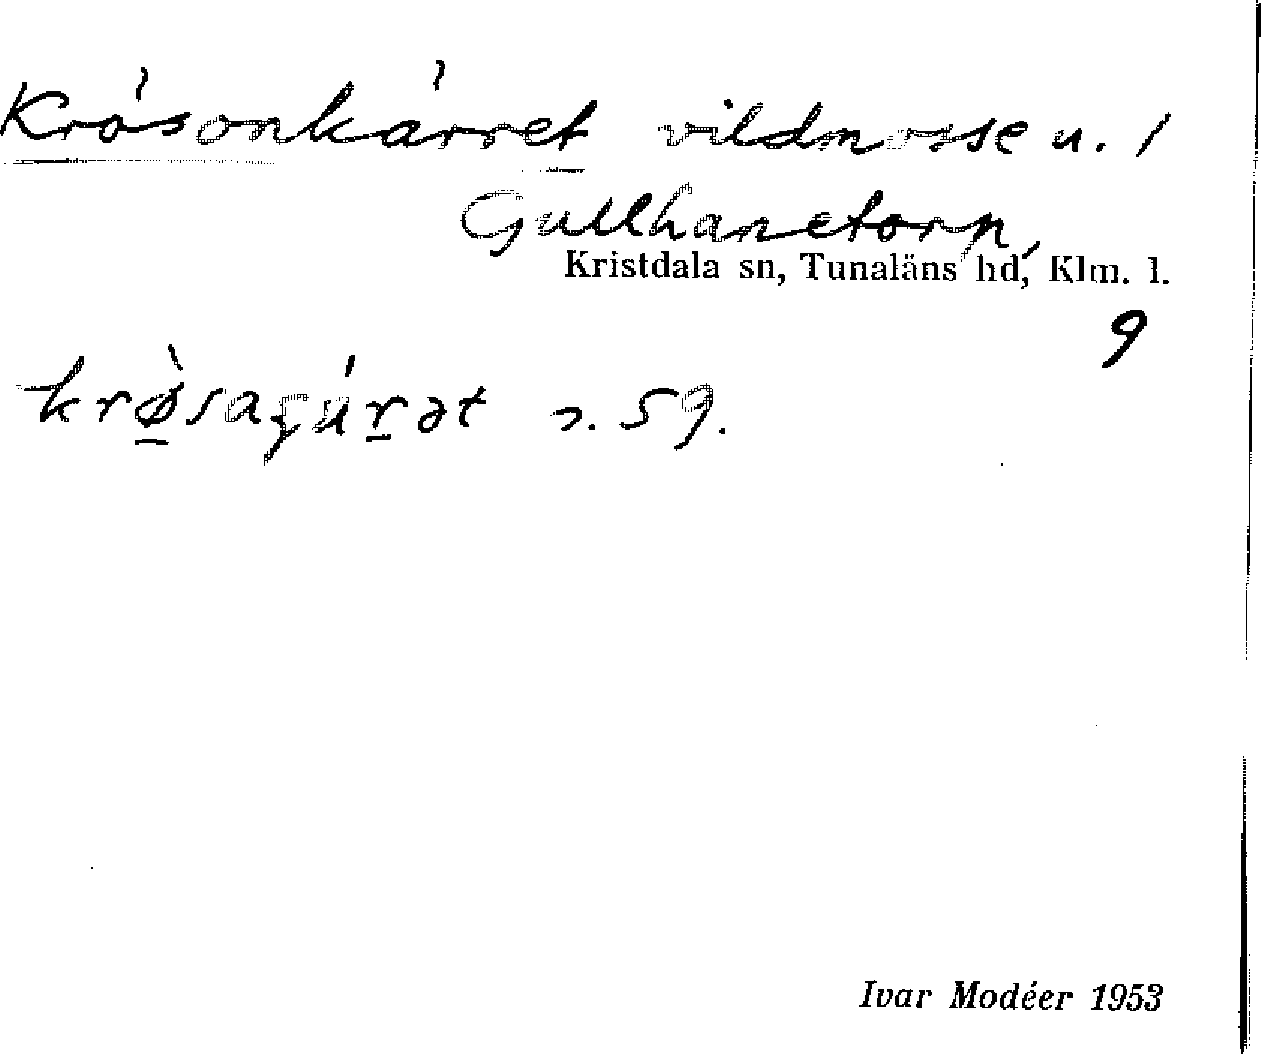 Krösonkärret vildmosse u. 1
Gullhanetorp,
Kristdala sn, Tunaläns hd, Klm. l.
9
s. 59.
Ivar Modéer 1953